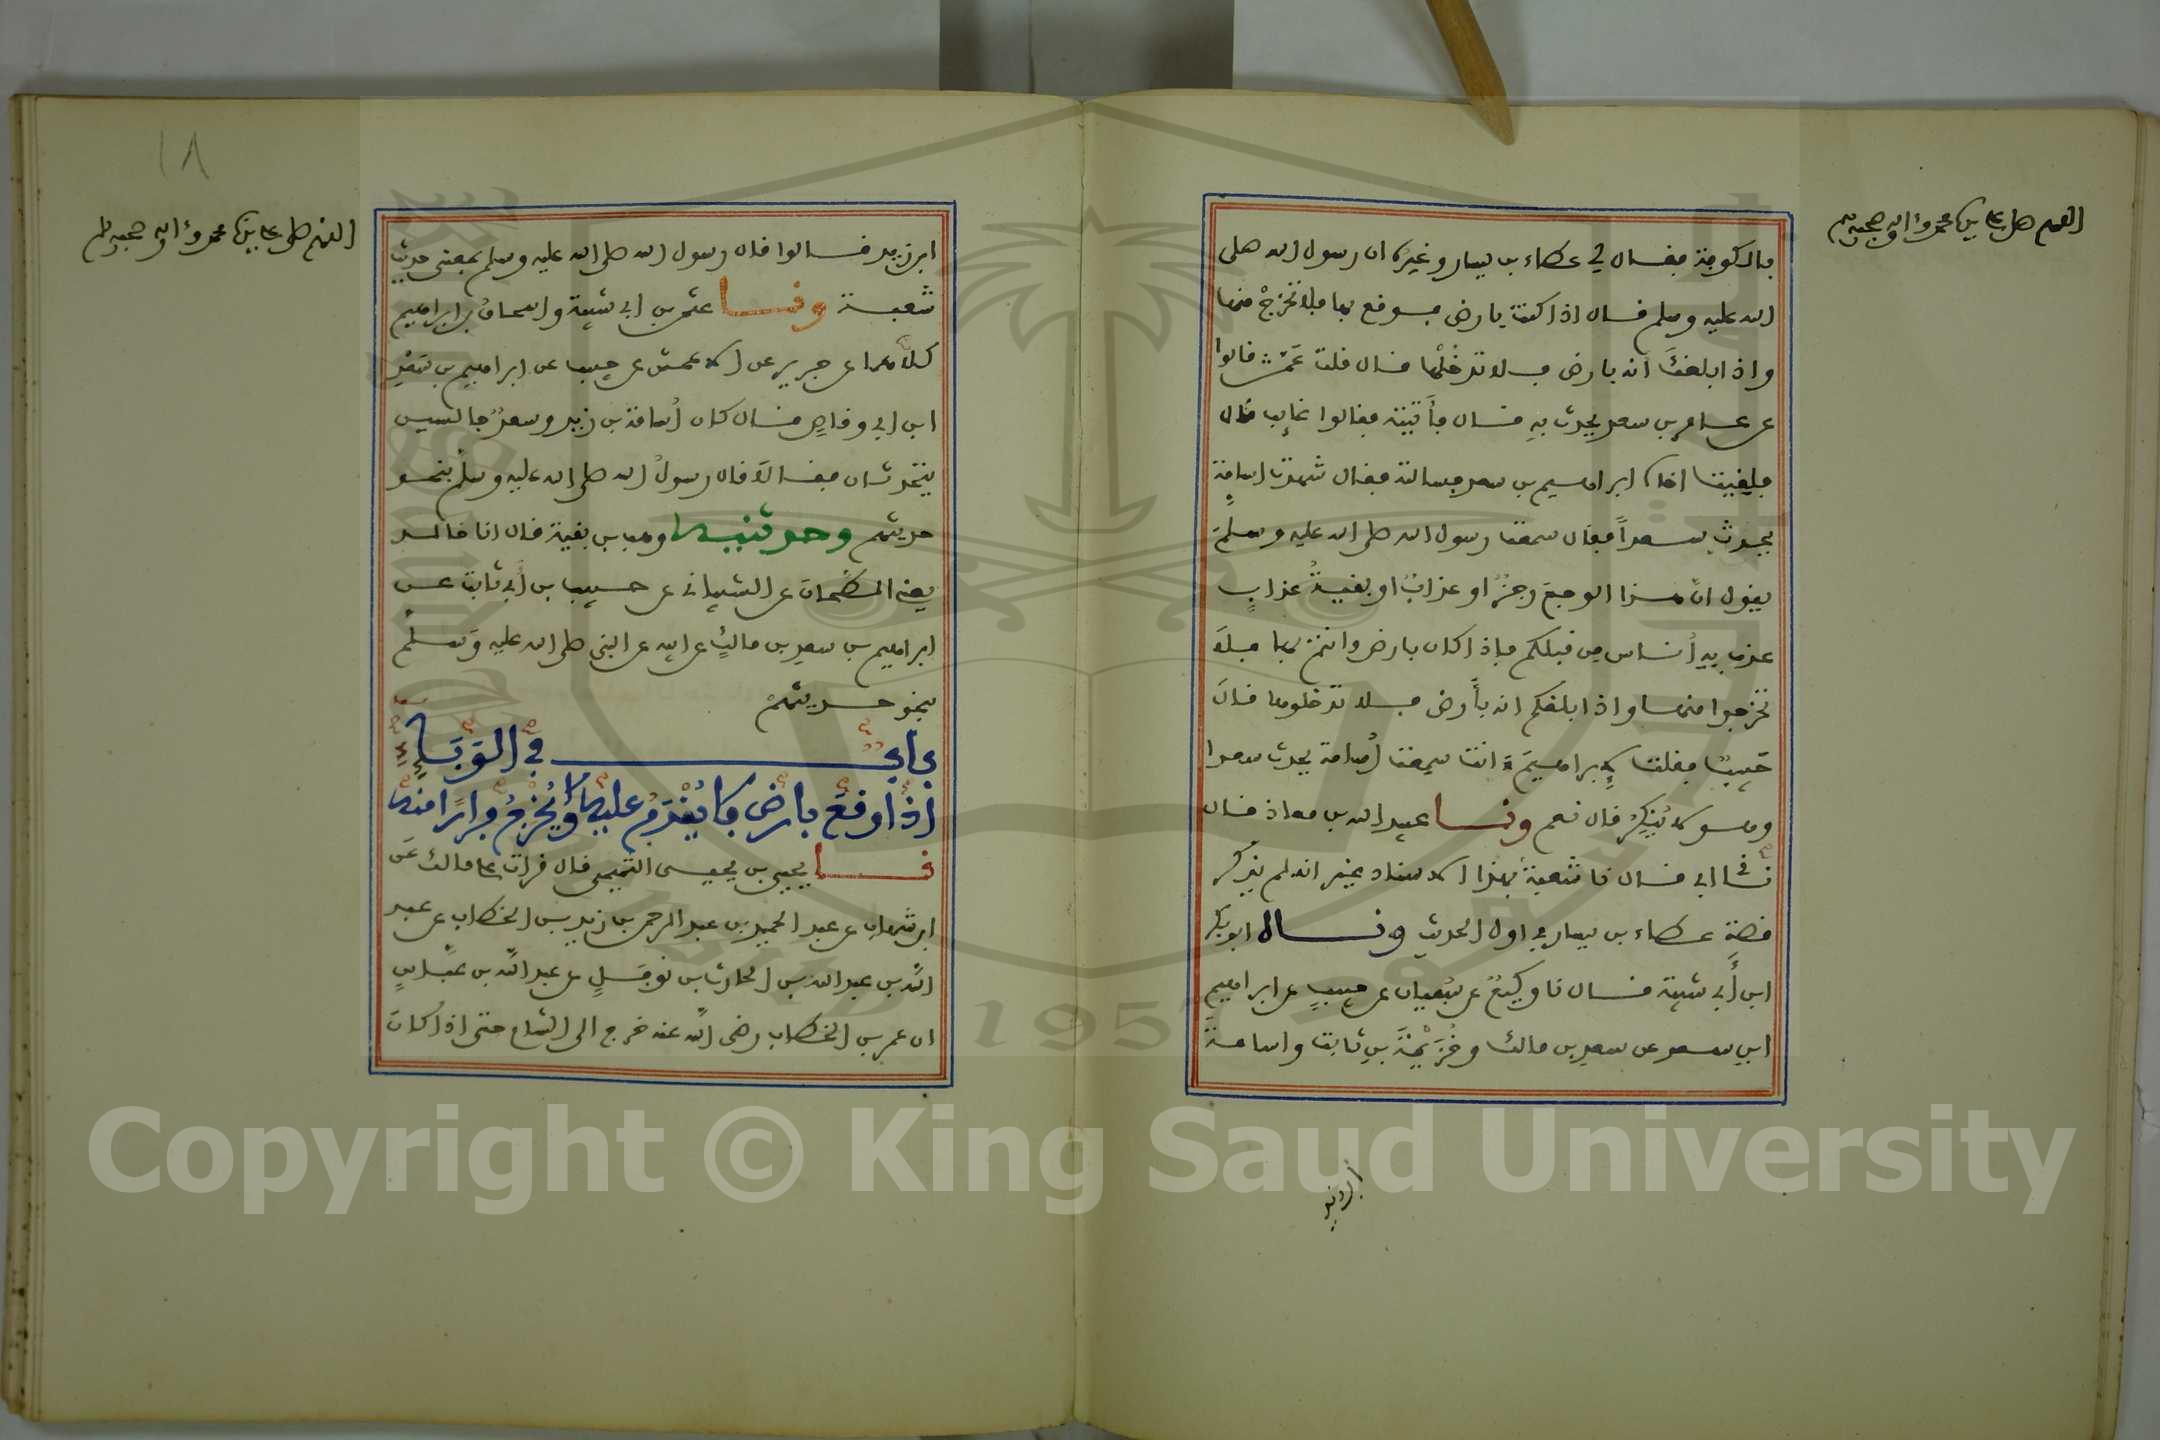 اللهم صل على سيدنا محمد وءاله وصحبه وسلم
بالكوفة فقال لي عطاء بن يسار وغيره ان رسول الله صلى
الله عليه وسلم قال اذا كنت بارض فوقع بها فلا تخرج منها
واذا بلغك انه بارض فلا تدخلها قال قلت عمن قالوا
عن عامر بن سعد يحدث به قال فأتيته فقالوا غايب قال
فلقيت اخاه ابراهيم بن سعد فسالته فقال شهدت اسامة
يحدث سعداً فقال سمعت رسول الله صلى الله عليه وسلم
يقول ان هذا الوجع رجز او عذاب او بقية عذاب
عذب به أناس من قبلكم فإذا كان بارض وانتم بها فلا
تخرجوا منها واذا بلغكم انه بأرض فلا تدخلوها قال
حبيب فقلت لإبراهيم ءانت سمعت أسامة يحدث سعدا
وهو لا ينكر قال نعم ونا عبيد الله بن معاذ قال
نا ابي قال نا شعبة بهذا الاسناد غير انه لم يذكر
قصة عطاء بن يسار في اول الحديث وقال ابو بكر
ابن أبي شيبة قال نا وكيع عن سفيان عن حبيب عن ابراهيم
ابن سعد عن سعد بن مالك وخزيمة بن ثابت واسامة
ابن زيد
١٨
اللهم صل على سيدنا محمد وءاله وصحبه وسلم
ابن زيد قالوا قال رسول الله صلى الله عليه وسلم بمعنى حديث
شعبة ونا عثمن بن ابي شيبة واسحاق بن ابراهيم
كلاهما عن جرير عن الاعمش عن حبيب عن ابراهيم بن سعد
ابن ابي وقاص قال كان أسامة بن زيد وسعد جالسين
يتحدثان فقالا قال رسول الله صلى الله عليه وسلم بنحو
حديثهم وحدثنيه وهب بن بقية قال انا خالد
يعني الطحان عن الشيباني عن حبيب بن أبي ثابت عن
ابراهيم بن سعد بن مالك عن ابيه عن النبي صلى الله عليه وسلم
بنحو حديثهم
باب في الوباء
اذا وقع بارض فلا يقدم عليها ولا يخرج فرارا منها
نا يحيى بن يحيى التميمي قال قرات على مالك عن
ابن شهاب عن عبد الحميد بن عبد الرحمن بن زيد بن الخطاب عن عبد
الله بن عبد الله بن الحارث بن نوفل عن عبد الله بن عباس
ان عمر بن الخطاب رضي الله عنه خرج الى الشام حتى اذا كان
Copyright © King Saud University
1957